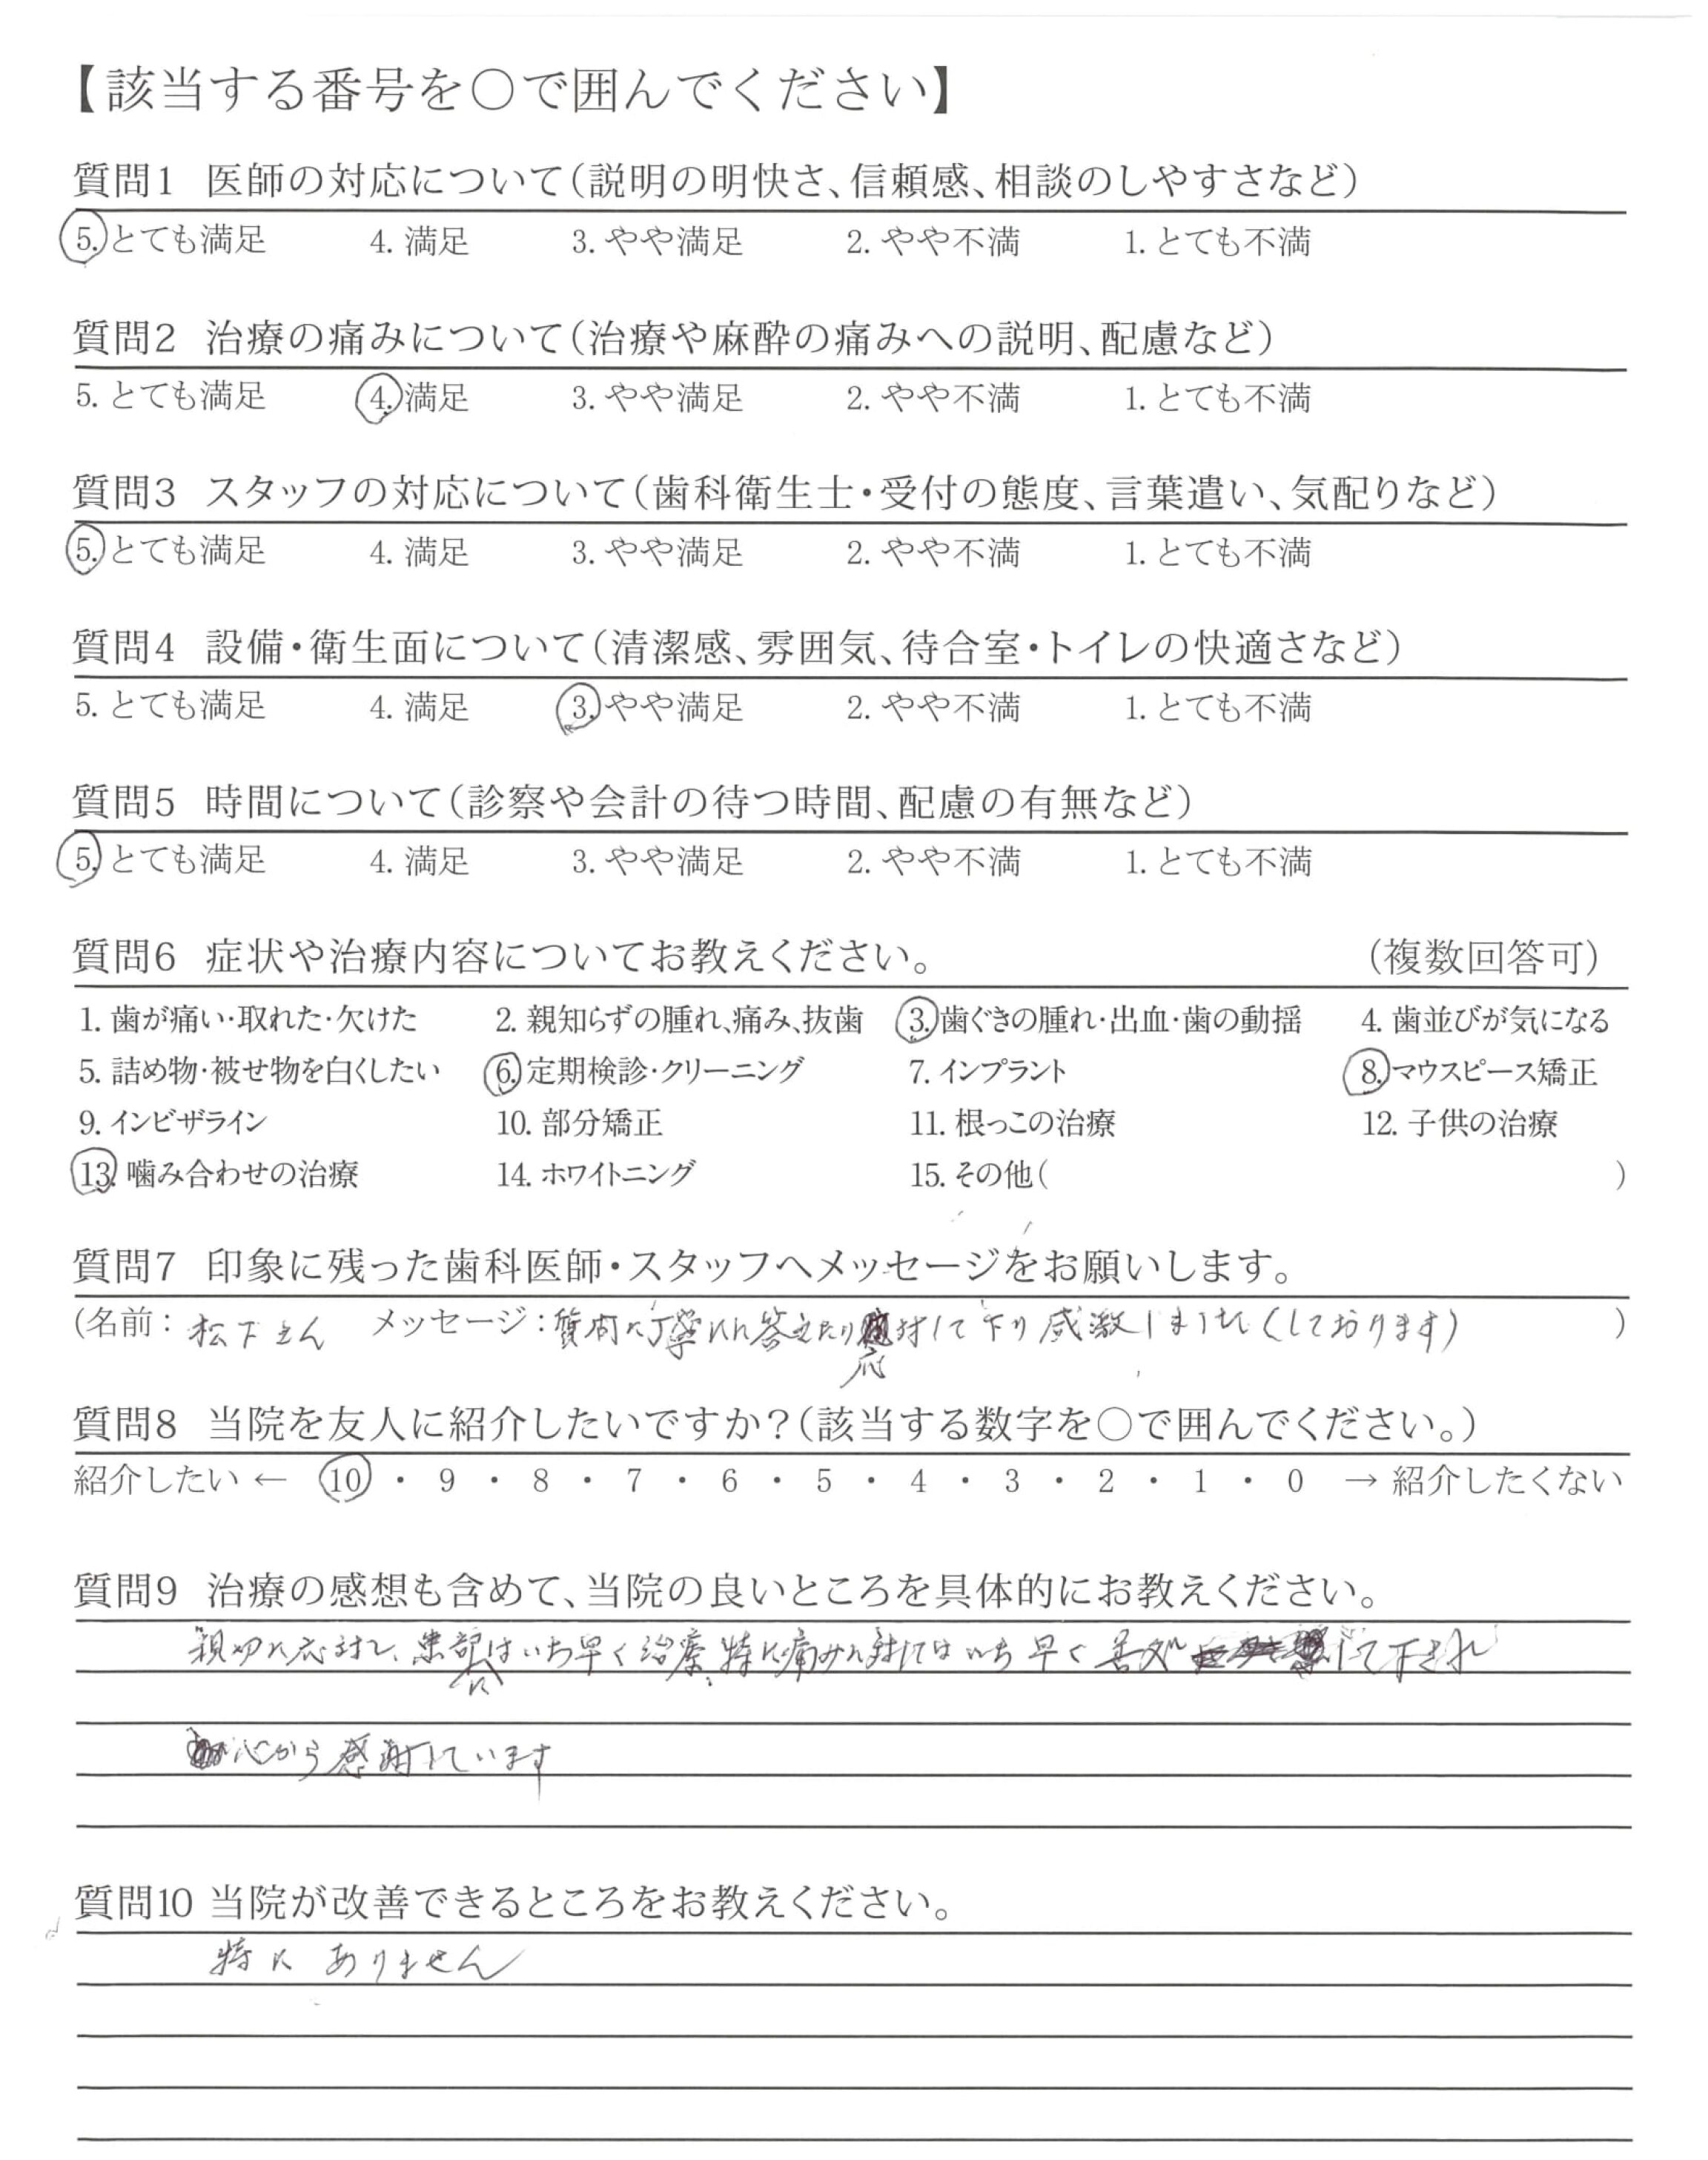 【該当する番号を○で囲んでください】
質問1 医師の対応について(説明の明快さ、信頼感、相談のしやすさなど)
5. とても満足 4. 満足 3. やや満足 2. やや不満 1. とても不満
質問2 治療の痛みについて(治療や麻酔の痛みへの説明、配慮など)
5. とても満足 4. 満足 3. やや満足 2. やや不満 1. とても不満
質問3 スタッフの対応について(歯科衛生士・受付の態度、言葉遣い、気配りなど)
5. とても満足 4. 満足 3. やや満足 2. やや不満 1. とても不満
質問4 設備・衛生面について(清潔感、雰囲気、待合室・トイレの快適さなど)
5. とても満足 4. 満足 3. やや満足 2. やや不満 1. とても不満
質問5 時間について(診察や会計の待つ時間、配慮の有無など)
5. とても満足 4. 満足 3. やや満足 2. やや不満 1. とても不満
質問6 症状や治療内容についてお教えください。 (複数回答可)
1. 歯が痛い・取れた・欠けた 2. 親知らずの腫れ、痛み、抜歯 3. 歯ぐきの腫れ・出血・歯の動揺 4. 歯並びが気になる
5. 詰め物・被せ物を白くしたい 6. 定期検診・クリーニング 7. インプラント 8. マウスピース矯正
9. インビザライン 10. 部分矯正 11. 根っこの治療 12. 子供の治療
13. 噛み合わせの治療 14. ホワイトニング 15. その他( )
質問7 印象に残った歯科医師・スタッフへメッセージをお願いします。
(名前: 松下さん メッセージ: 質問に丁寧に答えたり応対して下り感激しました(しております) )
質問8 当院を友人に紹介したいですか?(該当する数字を○で囲んでください。)
紹介したい ← 10 ・ 9 ・ 8 ・ 7 ・ 6 ・ 5 ・ 4 ・ 3 ・ 2 ・ 1 ・ 0 → 紹介したくない
質問9 治療の感想も含めて、当院の良いところを具体的にお教えください。
親切に応対し、患部にはいち早く治療、特に痛みに対してはいち早く善処して下され
心から感謝しています
質問10 当院が改善できるところをお教えください。
特に ありません